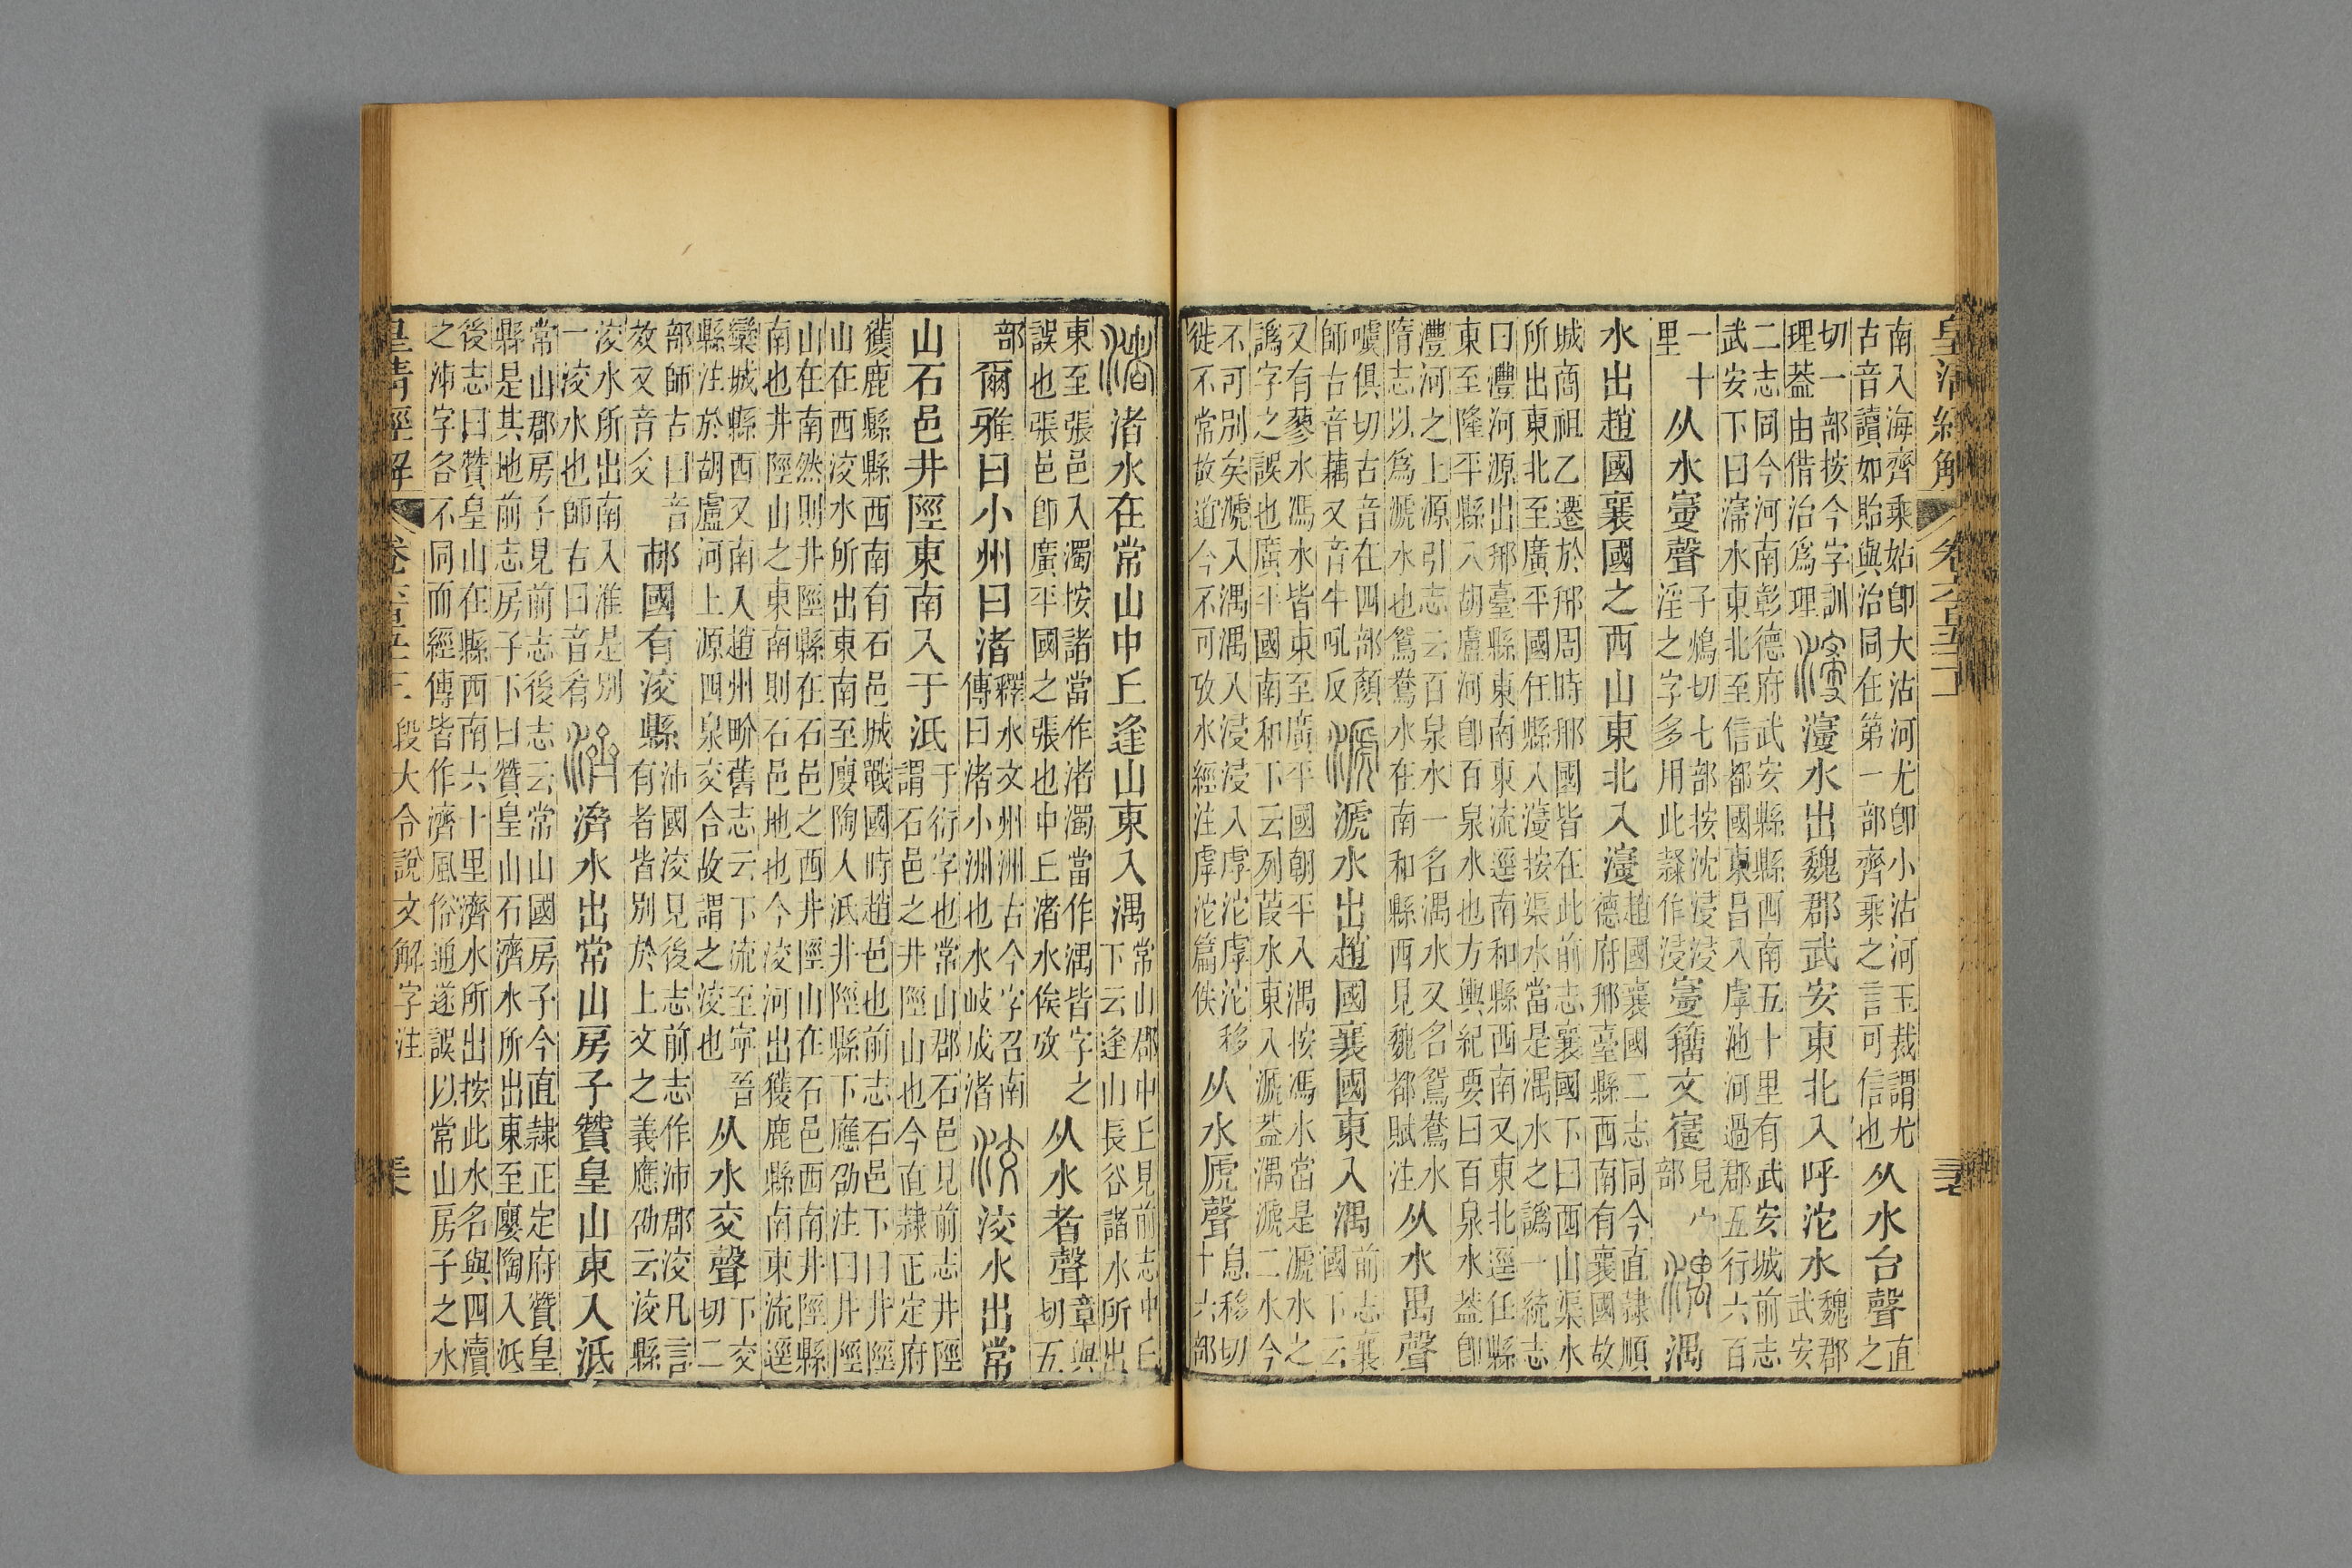 皇清經解 卷六百五十二 三七
南入海齊乘姑卽大沽河尤卽小沽河玉裁謂尤古音讀如貽與治同在第一部齊乘之言可信也从水台聲直之
切一部按今字訓理葢由借治爲理濅濅水出魏郡武安東北入呼沱水魏郡武安
二志同今河南彰德府武安縣縣西南五十里有武安城前志武安下曰濅水東北至信都國東昌入虖池河過郡五行六百
一十里从水㝲聲子鴆切七部按沈浸浸淫之字多用此隸作浸㝲籒文寑見宀部湡湡
水出趙國襄國之西山東北入濅趙國襄國二志同今直隸順德府邢臺縣西南有襄國故
城商祖乙遷於邢周時邢國皆在此前志襄國下曰西山渠水所出東北至廣平國任縣入濅按渠水當是湡水之譌一統志
曰灃河源出邢臺縣東南東流逕南和縣西南又東北逕任縣東至隆平縣入胡盧河卽百泉水也方輿紀要曰百泉水葢卽
灃河之上源引志云百泉水一名湡水又名鴛鴦水隋志以爲㴲水也鴛鴦水在南和縣西見魏都賦注从水禺聲
噳俱切古音在四部顏師古音藕又音牛吼反㴲㴲水出趙國襄國東入湡前志襄國下云
又有蓼水馮水皆東至廣平國朝平入湡按馮水當是㴲水之譌字之誤也廣平國南和下云列葭水東入㴲葢湡㴲二水今
不可別矣㴲入湡湡入浸浸入虖沱虖沱移徙不常故道今不可攷水經注虖沱篇佚从水虒聲息移切十六部
渚渚水在常山中丘逢山東入湡常山郡中丘見前志中丘下云逢山長谷諸水所出
東至張邑入濁按諸當作渚濁當作湡皆字之誤也張邑卽廣平國之張也中丘渚水俟攷从水者聲章與切五
部爾雅曰小州曰渚釋水文州洲古今字召南傳曰渚小洲也水岐成渚洨洨水出常
山石邑井陘東南入于泜于衍字也常山郡石邑見前志井陘謂石邑之井陘山也今直隸正定府
獲鹿縣縣西南有石邑城戰國時趙邑也前志石邑下曰井陘山在西洨水所出東南至廮陶入泜井陘縣下應劭注曰井陘
山在南然則井陘縣在石邑之西井陘山在石邑西南井陘縣南也井陘山之東南則石邑地也今洨河出獲鹿縣南東流逕
欒城縣西又南入趙州畍舊志云下流至寧晉縣注於胡盧河上源四泉交合故謂之洨也从水交聲下交切二
部師古曰音效又音爻邟國有洨縣沛國洨見後志前志作沛郡洨凡言有者皆別於上文之義應劭云洨縣
洨水所出南入淮是別一洨水也師古曰音肴濟濟水出常山房子贊皇山東入泜
常山郡房子見前志後志云常山國房子今直隸正定府贊皇縣是其地前志房子下曰贊皇山石濟水所出東至廮陶入泜
後志曰贊皇山在縣西南六十里濟水所出按此水名與四瀆之沛字各不同而經傳皆作濟風俗通遂誤以常山房子之水
皇清經解 卷六百五十二 段大令說文解字注